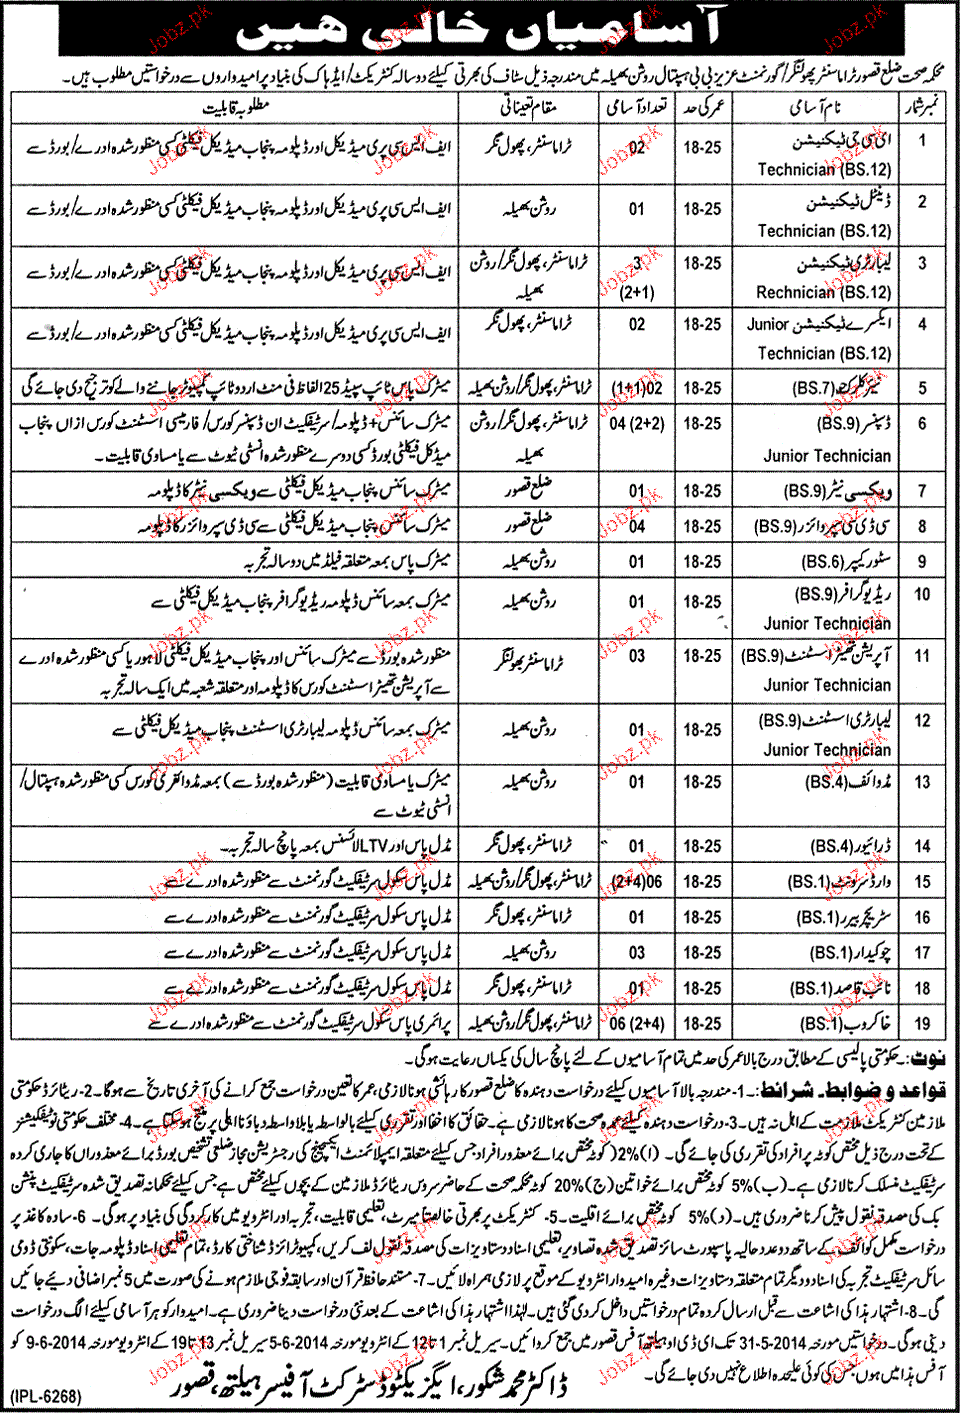 آسامیاں خالی ھیں
محکمہ صحت ضلع قصور ٹراما سنٹر پھولنگر/گورنمنٹ عزیز بی بی ہسپتال روشن بھیلہ میں مندرجہ ذیل سٹاف کی بھرتی کیلئے دو سالہ کنٹریکٹ/ایڈہاک کی بنیاد پر امیدواروں سے درخواستیں مطلوب ہیں۔
نمبر شمار نام آسامی عمر کی حد تعداد آسامی مقام تعیناتی مطلوبہ قابلیت
1 ای سی جی ٹیکنیشن 18-25 02 ٹراما سنٹر، پھول نگر ایف ایس سی پری میڈیکل اور ڈپلومہ پنجاب میڈیکل فیکلٹی کسی منظور شدہ ادرے/بورڈ سے
Technician (BS.12)
2 ڈینٹل ٹیکنیشن 18-25 01 روشن بھیلہ ایف ایس سی پری میڈیکل اور ڈپلومہ پنجاب میڈیکل فیکلٹی کسی منظور شدہ ادرے/بورڈ سے
Technician (BS.12)
3 لیبارٹری ٹیکنیشن 18-25 3 ٹراما سنٹر، پھول نگر/روشن ایف ایس سی پری میڈیکل اور ڈپلومہ پنجاب میڈیکل فیکلٹی کسی منظور شدہ ادرے/بورڈ سے
Rechnician (BS.12) (2+1) بھیلہ
4 ایکسرے ٹیکنیشن Junior 18-25 02 ٹراما سنٹر، پھول نگر ایف ایس سی پری میڈیکل اور ڈپلومہ پنجاب میڈیکل فیکلٹی کسی منظور شدہ ادرے/بورڈ سے
Technician (BS.12)
5 (BS.7) 18-25 02(1+1) ٹراما سنٹر، پھول نگر/روشن بھیلہ میٹرک پاس ٹائپ سپیڈ 25 الفاظ فی منٹ اردو ٹائپ کمپیوٹر جاننے والے کو ترجیح دی جائے گی
6 ڈسپنسر (BS.9) 18-25 04 (2+2) ٹراما سنٹر، پھول نگر/روشن میٹرک سائنس + ڈپلومہ/سرٹیفکیٹ ان ڈسپنسر کورس/فارمیسی اسسٹنٹ کورس ازاں پنجاب
Junior Technician بھیلہ میڈیکل فیکلٹی بورڈ کسی دوسرے منظور شدہ انسٹی ٹیوٹ سے یا مساوی قابلیت۔
7 ویکسی نیٹر (BS.9) 18-25 01 ضلع قصور میٹرک سائنس پنجاب میڈیکل فیکلٹی سے ویکسی نیٹر کا ڈپلومہ
8 سی ڈی سی سپروائزر (BS.9) 18-25 04 ضلع قصور میٹرک سائنس پنجاب میڈیکل فیکلٹی سے سی ڈی سپروائزر کا ڈپلومہ
9 سٹور کیپر (BS.6) 18-25 01 روشن بھیلہ میٹرک پاس بمعہ متعلقہ فیلڈ میں دو سالہ تجربہ
10 ریڈیو گرافر (BS.9) 18-25 01 روشن بھیلہ میٹرک بمعہ سائنس ڈپلومہ ریڈیو گرافر پنجاب میڈیکل فیکلٹی سے
Junior Technician
11 آپریشن تھیٹر اسسٹنٹ (BS.9) 18-25 03 ٹراما سنٹر پھولنگر منظور شدہ بورڈ سے میٹرک سائنس اور پنجاب میڈیکل فیکلٹی لاہور یا کسی منظور شدہ ادرے
Junior Technician سے آپریشن تھیٹر اسسٹنٹ کورس کا ڈپلومہ اور متعلقہ شعبہ میں ایک سالہ تجربہ
12 لیبارٹری اسسٹنٹ (BS.9) 18-25 01 روشن بھیلہ میٹرک بمعہ سائنس ڈپلومہ لیبارٹری اسسٹنٹ پنجاب میڈیکل فیکلٹی سے
Junior Technician
13 مڈوائف (BS.4) 18-25 01 روشن بھیلہ میٹرک یا مساوی قابلیت (منظور شدہ بورڈ سے) بمعہ مڈوائفری کورس کسی منظور شدہ ہسپتال/
انسٹی ٹیوٹ سے
14 ڈرائیور (BS.4) 18-25 01 ٹراما سنٹر، پھول نگر مڈل پاس اور LTV لائسنس بمعہ پانچ سالہ تجربہ۔
15 وارڈ سرونٹ (BS.1) 18-25 06(2+4) ٹراما سنٹر، پھول نگر/روشن بھیلہ مڈل پاس سکول سرٹیفکیٹ گورنمنٹ سے منظور شدہ ادرے سے
16 سٹریچر بیرر (BS.1) 18-25 01 ٹراما سنٹر، پھول نگر مڈل پاس سکول سرٹیفکیٹ گورنمنٹ سے منظور شدہ ادرے سے
17 چوکیدار (BS.1) 18-25 03 روشن بھیلہ مڈل پاس سکول سرٹیفکیٹ گورنمنٹ سے منظور شدہ ادرے سے
18 نائب قاصد (BS.1) 18-25 01 ٹراما سنٹر، پھول نگر مڈل پاس سکول سرٹیفکیٹ گورنمنٹ سے منظور شدہ ادرے سے
19 خاکروب (BS.1) 18-25 06 (2+4) ٹراما سنٹر، پھول نگر/روشن بھیلہ پرائمری پاس سکول سرٹیفکیٹ گورنمنٹ سے منظور شدہ ادرے سے
نوٹ:۔ حکومتی پالیسی کے مطابق درج بالا عمر کی حد میں تمام آسامیوں کے لئے پانچ سال کی یکساں رعایت ہوگی۔
قواعد و ضوابط۔ شرائط:۔ 1- مندرجہ بالا آسامیوں کیلئے درخواست دہندہ کا ضلع قصور کا رہائشی ہونا لازمی، عمر کا تعین درخواست جمع کرانے کی آخری تاریخ سے ہوگا۔ 2- ریٹائرڈ حکومتی
ملازمین کنٹریکٹ ملازمت کے اہل نہ ہیں۔ 3- درخواست دہندہ کیلئے عمدہ صحت کا ہونا لازمی ہے۔ حقائق کا اخفا اور تقرری کیلئے بالواسطہ یا بلاواسطہ دباؤ نااہلی پر منتج ہوسکتا ہے۔ 4- مختلف حکومتی نوٹیفکیشنز
کے تحت درج ذیل مختص کوٹہ پر افراد کی تقرری کی جائے گی۔ (ا) 2% کوٹہ مختص برائے معذور افراد جس کیلئے متعلقہ ایمپلائمنٹ ایکسچینج کی رجسٹریشن مجاز ضلعی تشخیص بورڈ برائے معذوراں کا جاری کردہ
سرٹیفکیٹ منسلک کرنا لازمی ہے۔ (ب) 5% کوٹہ مختص برائے خواتین (ج) 20% کوٹہ محکمہ صحت کے حاضر سروس ریٹائرڈ ملازمین کے بچوں کیلئے مختص ہے جس کیلئے محکمانہ تصدیق شدہ سرٹیفکیٹ پنشن
بک کی مصدقہ نقول پیش کرنا ضروری ہیں۔ (د) 5% کوٹہ مختص برائے اقلیت۔ 5- کنٹریکٹ پر بھرتی خالصتاً میرٹ، تعلیمی قابلیت، تجربہ اور انٹرویو میں کارکردگی کی بنیاد پر ہوگی۔ 6- سادہ کاغذ پر
درخواست مکمل کوائف کے ساتھ دو عدد حالیہ پاسپورٹ سائز تصدیق شدہ تصاویر، تعلیمی اسناد و دستاویزات کی مصدقہ نقول لف کریں، کمپیوٹرائزڈ شناختی کارڈ، تمام تعلیمی اسناد ڈپلومہ جات، سکونتی ڈومی
سائل سرٹیفکیٹ تجربہ کی اسناد و دیگر تمام متعلقہ دستاویزات وغیرہ امیدوار انٹرویو کے موقع پر لازمی ہمراہ لائیں۔ 7- مستند حافظ قرآن اور سابقہ فوجی ملازم ہونے کی صورت میں 5 نمبر اضافی دیئے جائیں
گی۔ 8- اشتہار ہذا کی اشاعت سے قبل ارسال کردہ تمام درخواستیں داخل کر دی گئیں ہیں۔ لہٰذا اشتہار ہذا کی اشاعت کے بعد نئی درخواست دینا ضروری ہے۔ امیدوار کو ہر آسامی کیلئے الگ درخواست
دینی ہوگی۔ درخواستیں مورخہ 31-5-2014 تک ای ڈی او ہیلتھ آفس قصور میں جمع کروائیں۔ سیریل نمبر 1 تا 12 کے انٹرویو مورخہ 5-6-2014 سیریل نمبر 13 تا 19 کے انٹرویو مورخہ 9-6-2014 کو
آفس ہذا میں ہوں گے جس کی کوئی علیحدہ اطلاع نہیں دی جائے گی۔
ڈاکٹر محمد شکور، ایگزیکٹو ڈسٹرکٹ آفیسر ہیلتھ، قصور
(IPL-6268)
Jobz.pk